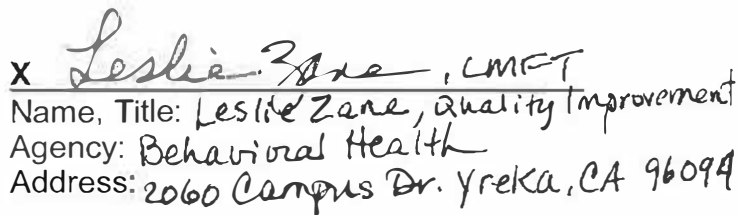 X Leslie Zane, LMFT
Name, Title: Leslie Zane, Quality Improvement
Agency: Behavioral Health
Address: 2060 Campus Dr. Yreka, CA 96094